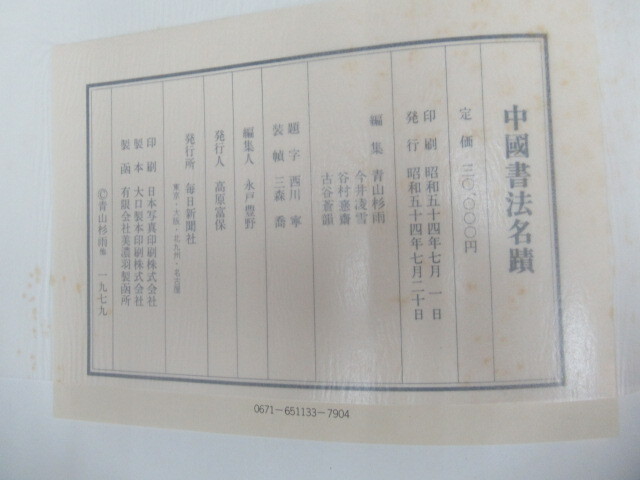 中國書法名蹟
定価 三〇、〇〇〇円
印刷 昭和五十四年七月一日
発行 昭和五十四年七月二十日
編集 青山杉雨
今井凌雪
谷村憙齋
古谷蒼韻
題字 西川 寧
装幀 三森 喬
編集人 永戸豊野
発行人 高原富保
発行所 毎日新聞社
東京・大阪・北九州・名古屋
印刷 日本写真印刷株式会社
製本 大口製本印刷株式会社
製函 有限会社美濃羽製函所
©青山杉雨他 一九七九
0671-651133-7904